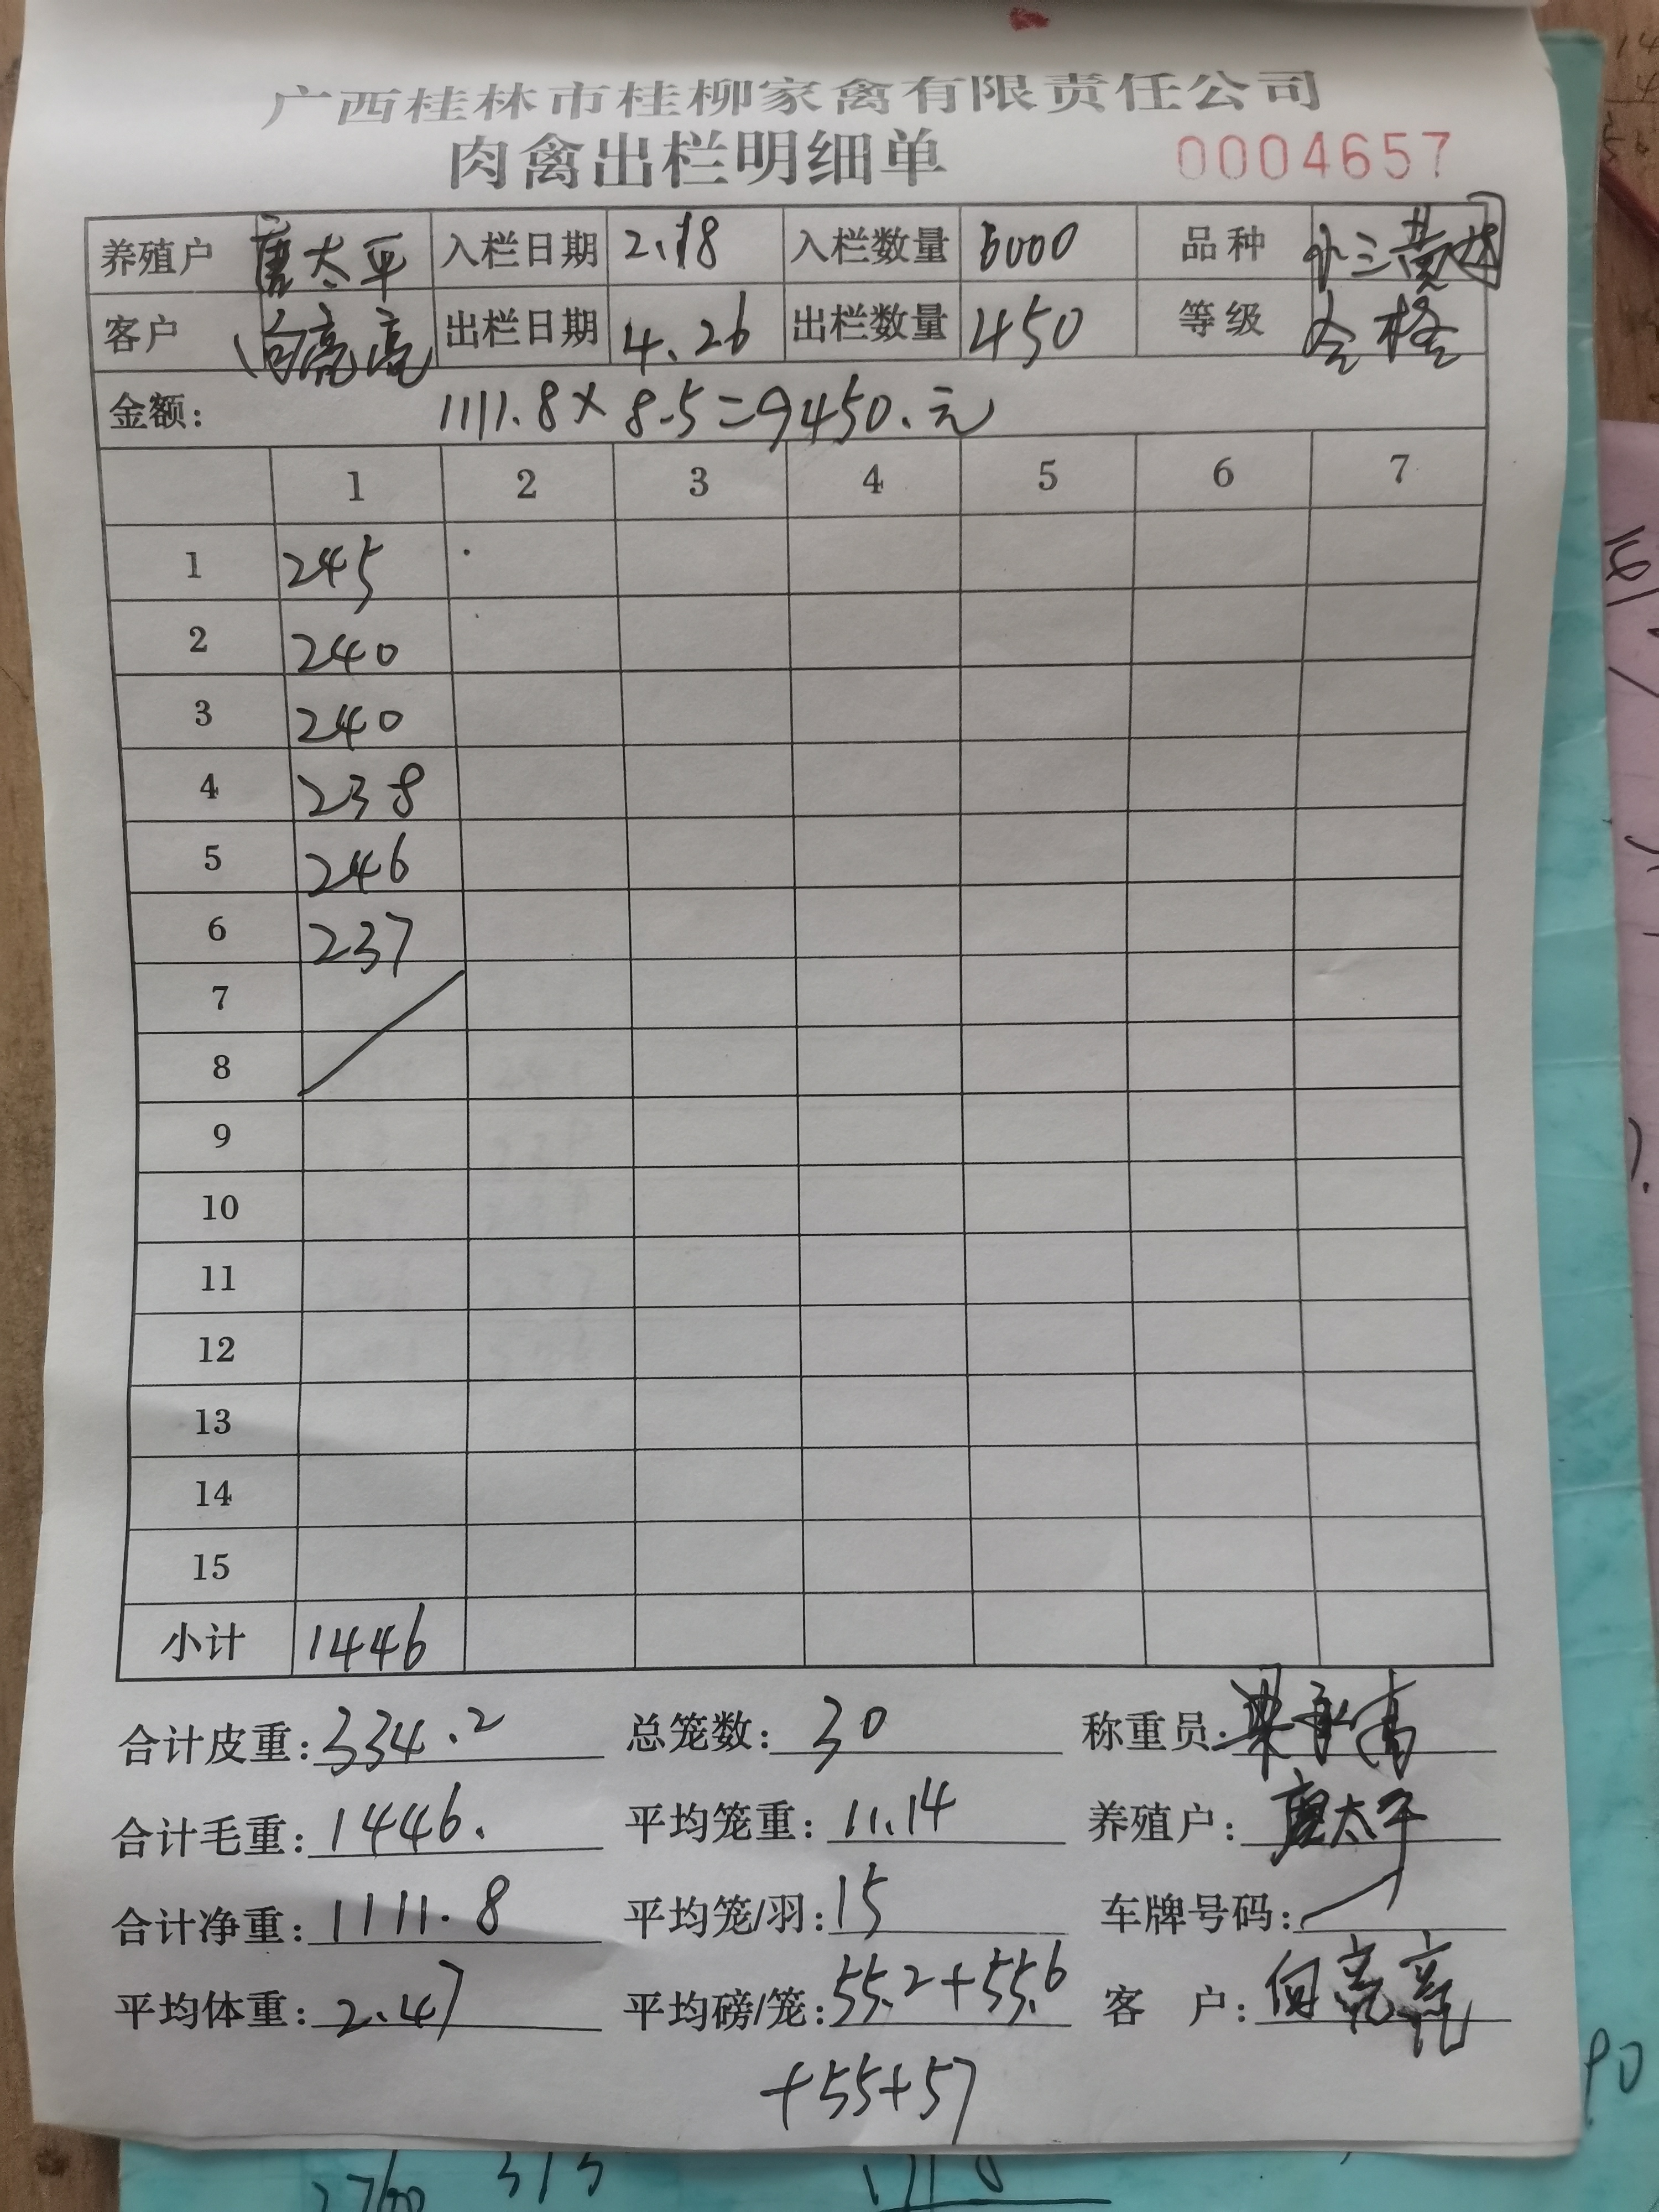 广西桂林市桂柳家禽有限责任公司
肉禽出栏明细单 0004657
养殖户 唐太平 入栏日期 2.18 入栏数量 6000 品种 小三黄
客户 向亮亮 出栏日期 4.26 出栏数量 450 等级 合格
金额: 1111.8×8.5=9450.元
1 2 3 4 5 6 7
1 245
2 240
3 240
4 238
5 246
6 237
7
8
9
10
11
12
13
14
15
小计 1446
合计皮重: 334.2 总笼数: 30 称重员:
合计毛重: 1446. 平均笼重: 11.14 养殖户: 唐太平
合计净重: 1111.8 平均笼/羽: 15 车牌号码:
平均体重: 2.47 平均磅/笼: 55.2+55.6 客 户: 向亮亮
+55+57